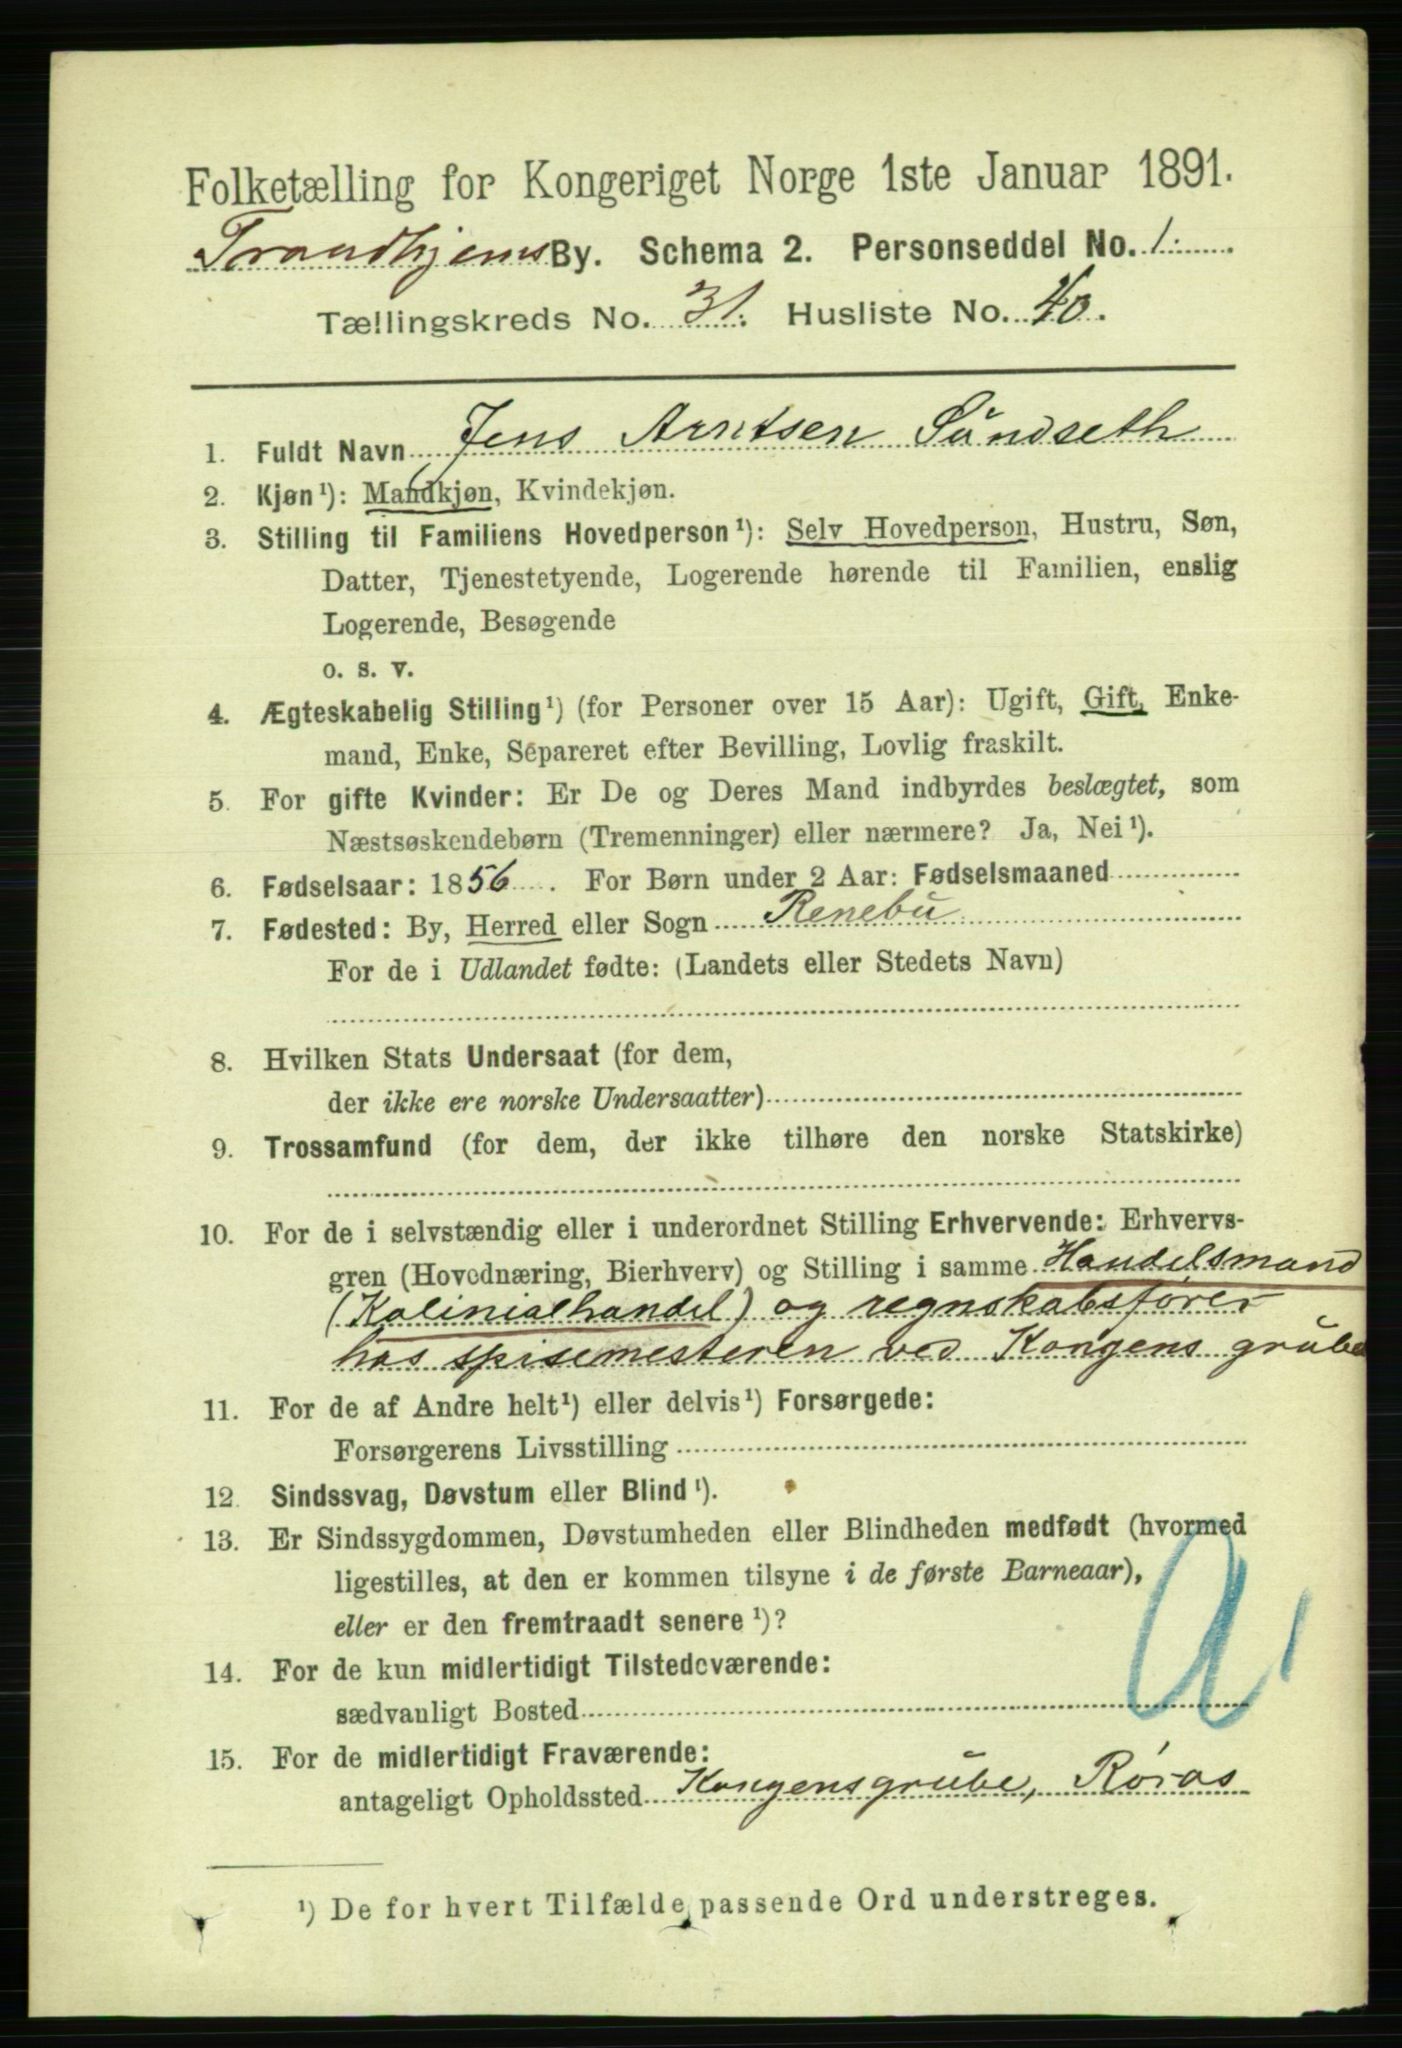 Folketælling for Kongeriget Norge 1ste Januar 1891.
Trondhjems By. Schema 2. Personseddel No. 1.
Tællingskreds No. 31. Husliste No. 40.
1. Fuldt Navn Jens Arntsen Sůndseth
2. Kjøn¹): Mandkjøn, Kvindekjøn.
3. Stilling til Familiens Hovedperson¹): Selv Hovedperson, Hustru, Søn,
Datter, Tjenestetyende, Logerende hørende til Familien, enslig
Logerende, Besøgende
o. s. v.
4. Ægteskabelig Stilling¹) (for Personer over 15 Aar): Ugift, Gift, Enke-
mand, Enke, Separeret efter Bevilling, Lovlig fraskilt.
5. For gifte Kvinder: Er De og Deres Mand indbyrdes beslægtet, som
Næstsøskendebørn (Tremenninger) eller nærmere? Ja, Nei¹).
6. Fødselsaar: 1856. For Børn under 2 Aar: Fødselsmaaned
7. Fødested: By, Herred eller Sogn Renebu
For de i Udlandet fødte: (Landets eller Stedets Navn)
8. Hvilken Stats Undersaat (for dem,
der ikke ere norske Undersaatter)
9. Trossamfund (for dem, der ikke tilhøre den norske Statskirke)
10. For de i selvstændig eller i underordnet Stilling Erhvervende: Erhvervs-
gren (Hovednæring, Bierhverv) og Stilling i samme Handelsmand
(Kolinialhandel) og regnskabsfører
hos spisemesteren ved Kongens grube
11. For de af Andre helt¹) eller delvis¹) Forsørgede:
Forsørgerens Livsstilling
12. Sindssvag, Døvstum eller Blind¹).
13. Er Sindssygdommen, Døvstumheden eller Blindheden medfødt (hvormed
ligestilles, at den er kommen tilsyne i de første Barneaar),
eller er den fremtraadt senere¹)?
14. For de kun midlertidigt Tilstedeværende:
sædvanligt Bosted
15. For de midlertidigt Fraværende:
antageligt Opholdssted Kongensgrube, Røros
¹) De for hvert Tilfælde passende Ord understreges.